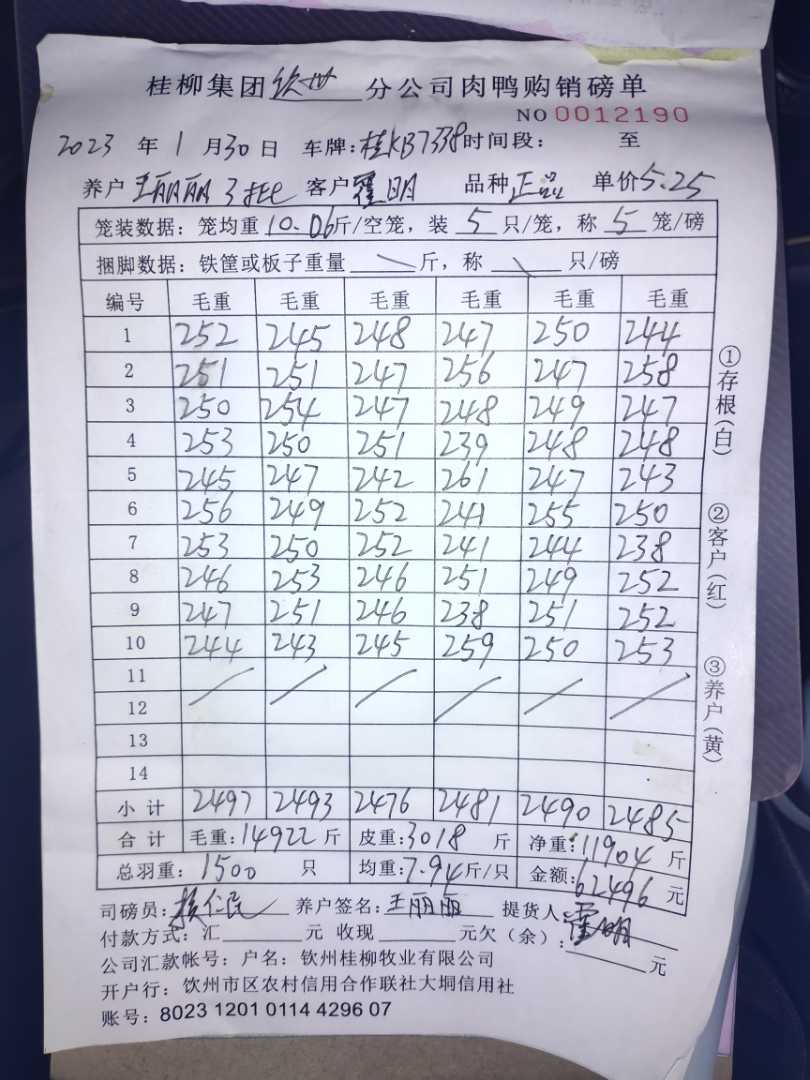 桂柳集团钦州分公司肉鸭购销磅单
NO 0012190
2023 年 1 月 30 日 车牌：桂KB7338 时间段： 至
养户 王丽丽 3批 客户 霍明 品种 正品 单价 5.25
笼装数据：笼均重 10.06 斤/空笼，装 5 只/笼，称 5 笼/磅
捆脚数据：铁筐或板子重量 \ 斤，称 \ 只/磅
编号 毛重 毛重 毛重 毛重 毛重 毛重
1 252 245 248 247 250 244
2 251 251 247 256 247 258
3 250 254 247 248 249 247
4 253 250 251 239 248 248
5 245 247 242 261 247 243
6 256 249 252 241 255 250
7 253 250 252 241 244 238
8 246 253 246 251 249 252
9 247 251 246 238 251 252
10 244 243 245 259 250 253
11
12
13
14
小计 2497 2493 2476 2481 2490 2485
合计 毛重：14922 斤 皮重：3018 斤 净重：11904 斤
总羽重：1500 只 均重：7.94 斤/只 金额：62496 元
司磅员： 仁民 养户签名：王丽丽 提货人：霍明
付款方式：汇 元 收现 元欠（余）： 元
公司汇款帐号：户名：钦州桂柳牧业有限公司
开户行：钦州市区农村信用合作联社大垌信用社
账号：8023 1201 0114 4296 07
①存根（白）
②客户（红）
③养户（黄）